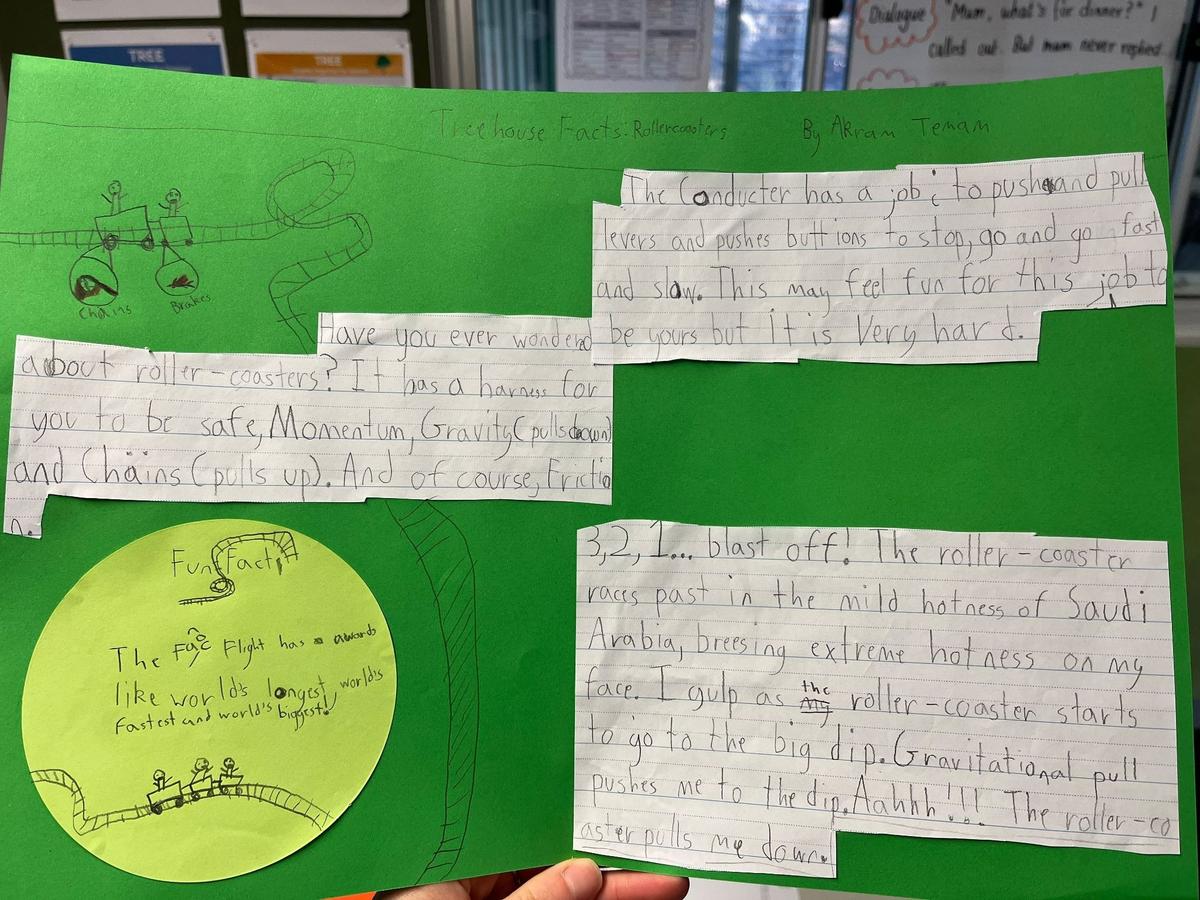 TREE
TREE
Dialogue "Mum, what's for dinner?" I
called out. But mum never replied.
Treehouse Facts: Rollercoasters By AKram Temam
Chains
Brakes
The Conducter has a job: to push and pull
levers and pushes buttions to stop, go and go fast
and slow. This may feel fun for this job to
be yours but it is Very hard.
Have you ever wondered
about roller-coasters? It has a harness for
you to be safe, Momentum, Gravity (pulls down)
and Chains (pulls up). And of course, Frictio
n.
Fun Fact!
The Flight has awards
like world's longest, world's
Fastest and world's biggest!
3,2,1... blast off! The roller-coaster
races past in the mild hotness of Saudi
Arabia, breesing extreme hotness on my
face. I gulp as the roller-coaster starts
to go to the big dip. Gravitational pull
pushes me to the dip. Aahhh!!! The roller-co
aster pulls me down.